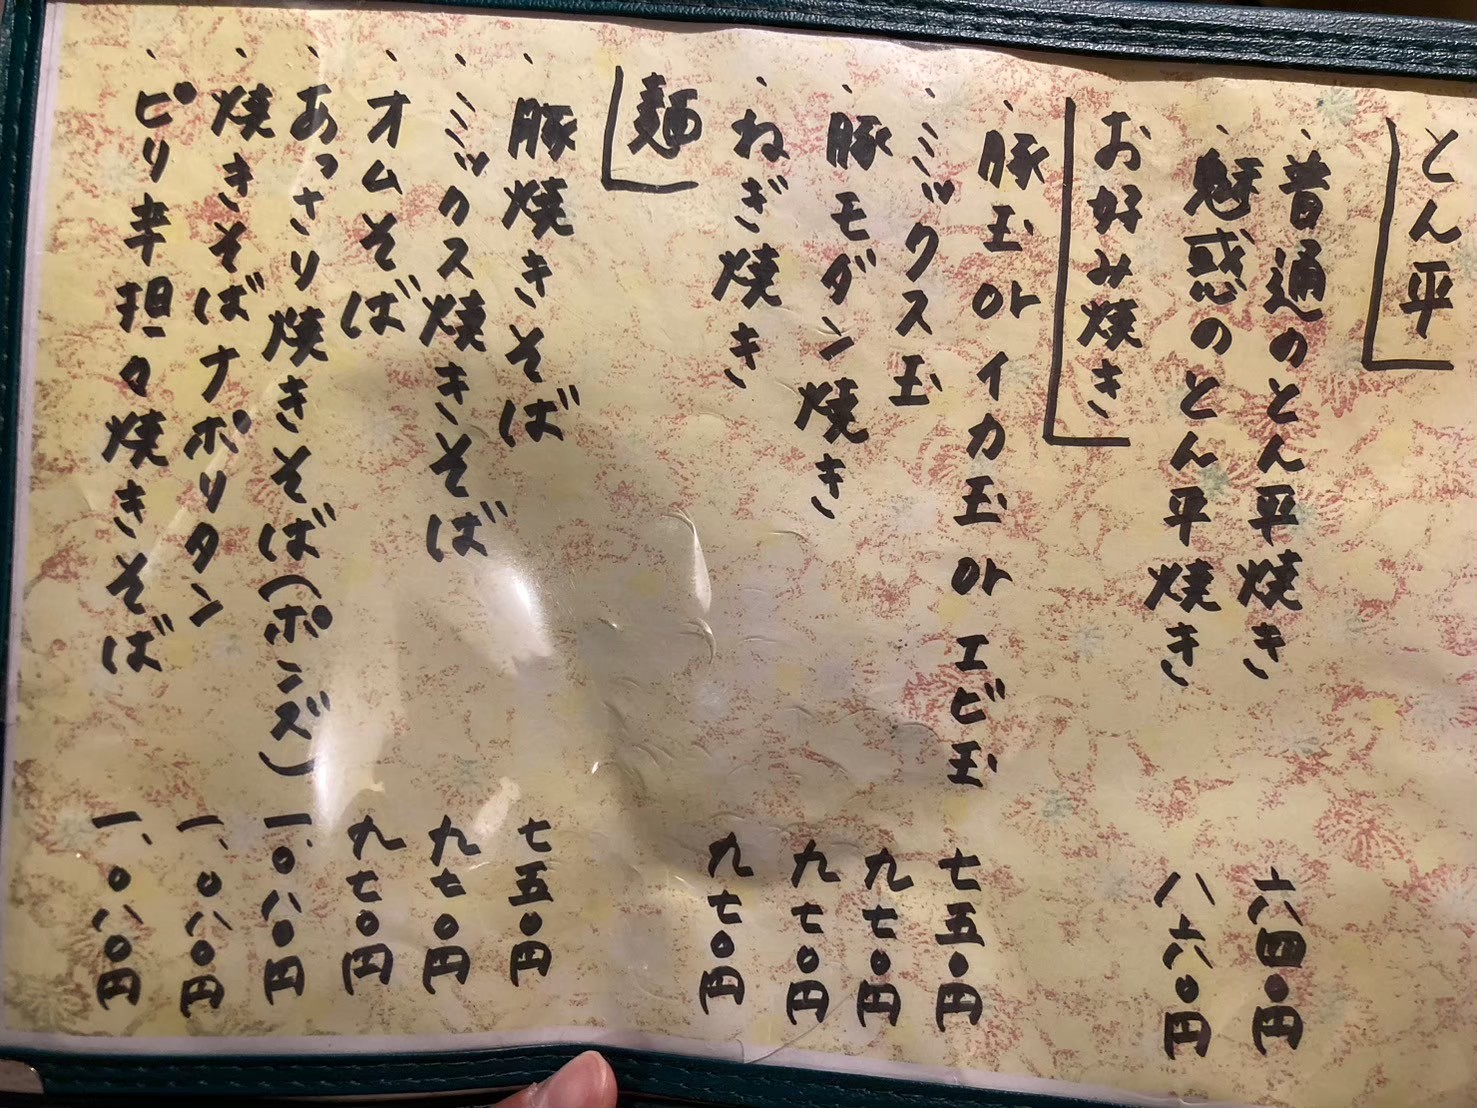 とん平
・普通のとん平焼き 六四〇円
・魅惑のとん平焼き 八六〇円
お好み焼き
・豚玉orイカ玉orエビ玉 七五〇円
・ミックス玉 九七〇円
・豚モダン焼き 九七〇円
・ねぎ焼き 九七〇円
麺
・豚焼きそば 七五〇円
・ミックス焼きそば 九七〇円
・オムそば 九七〇円
・あっさり焼きそば(ポンズ) 一、〇八〇円
・焼きそばナポリタン 一、〇八〇円
・ピリ辛担々焼きそば 一、〇八〇円